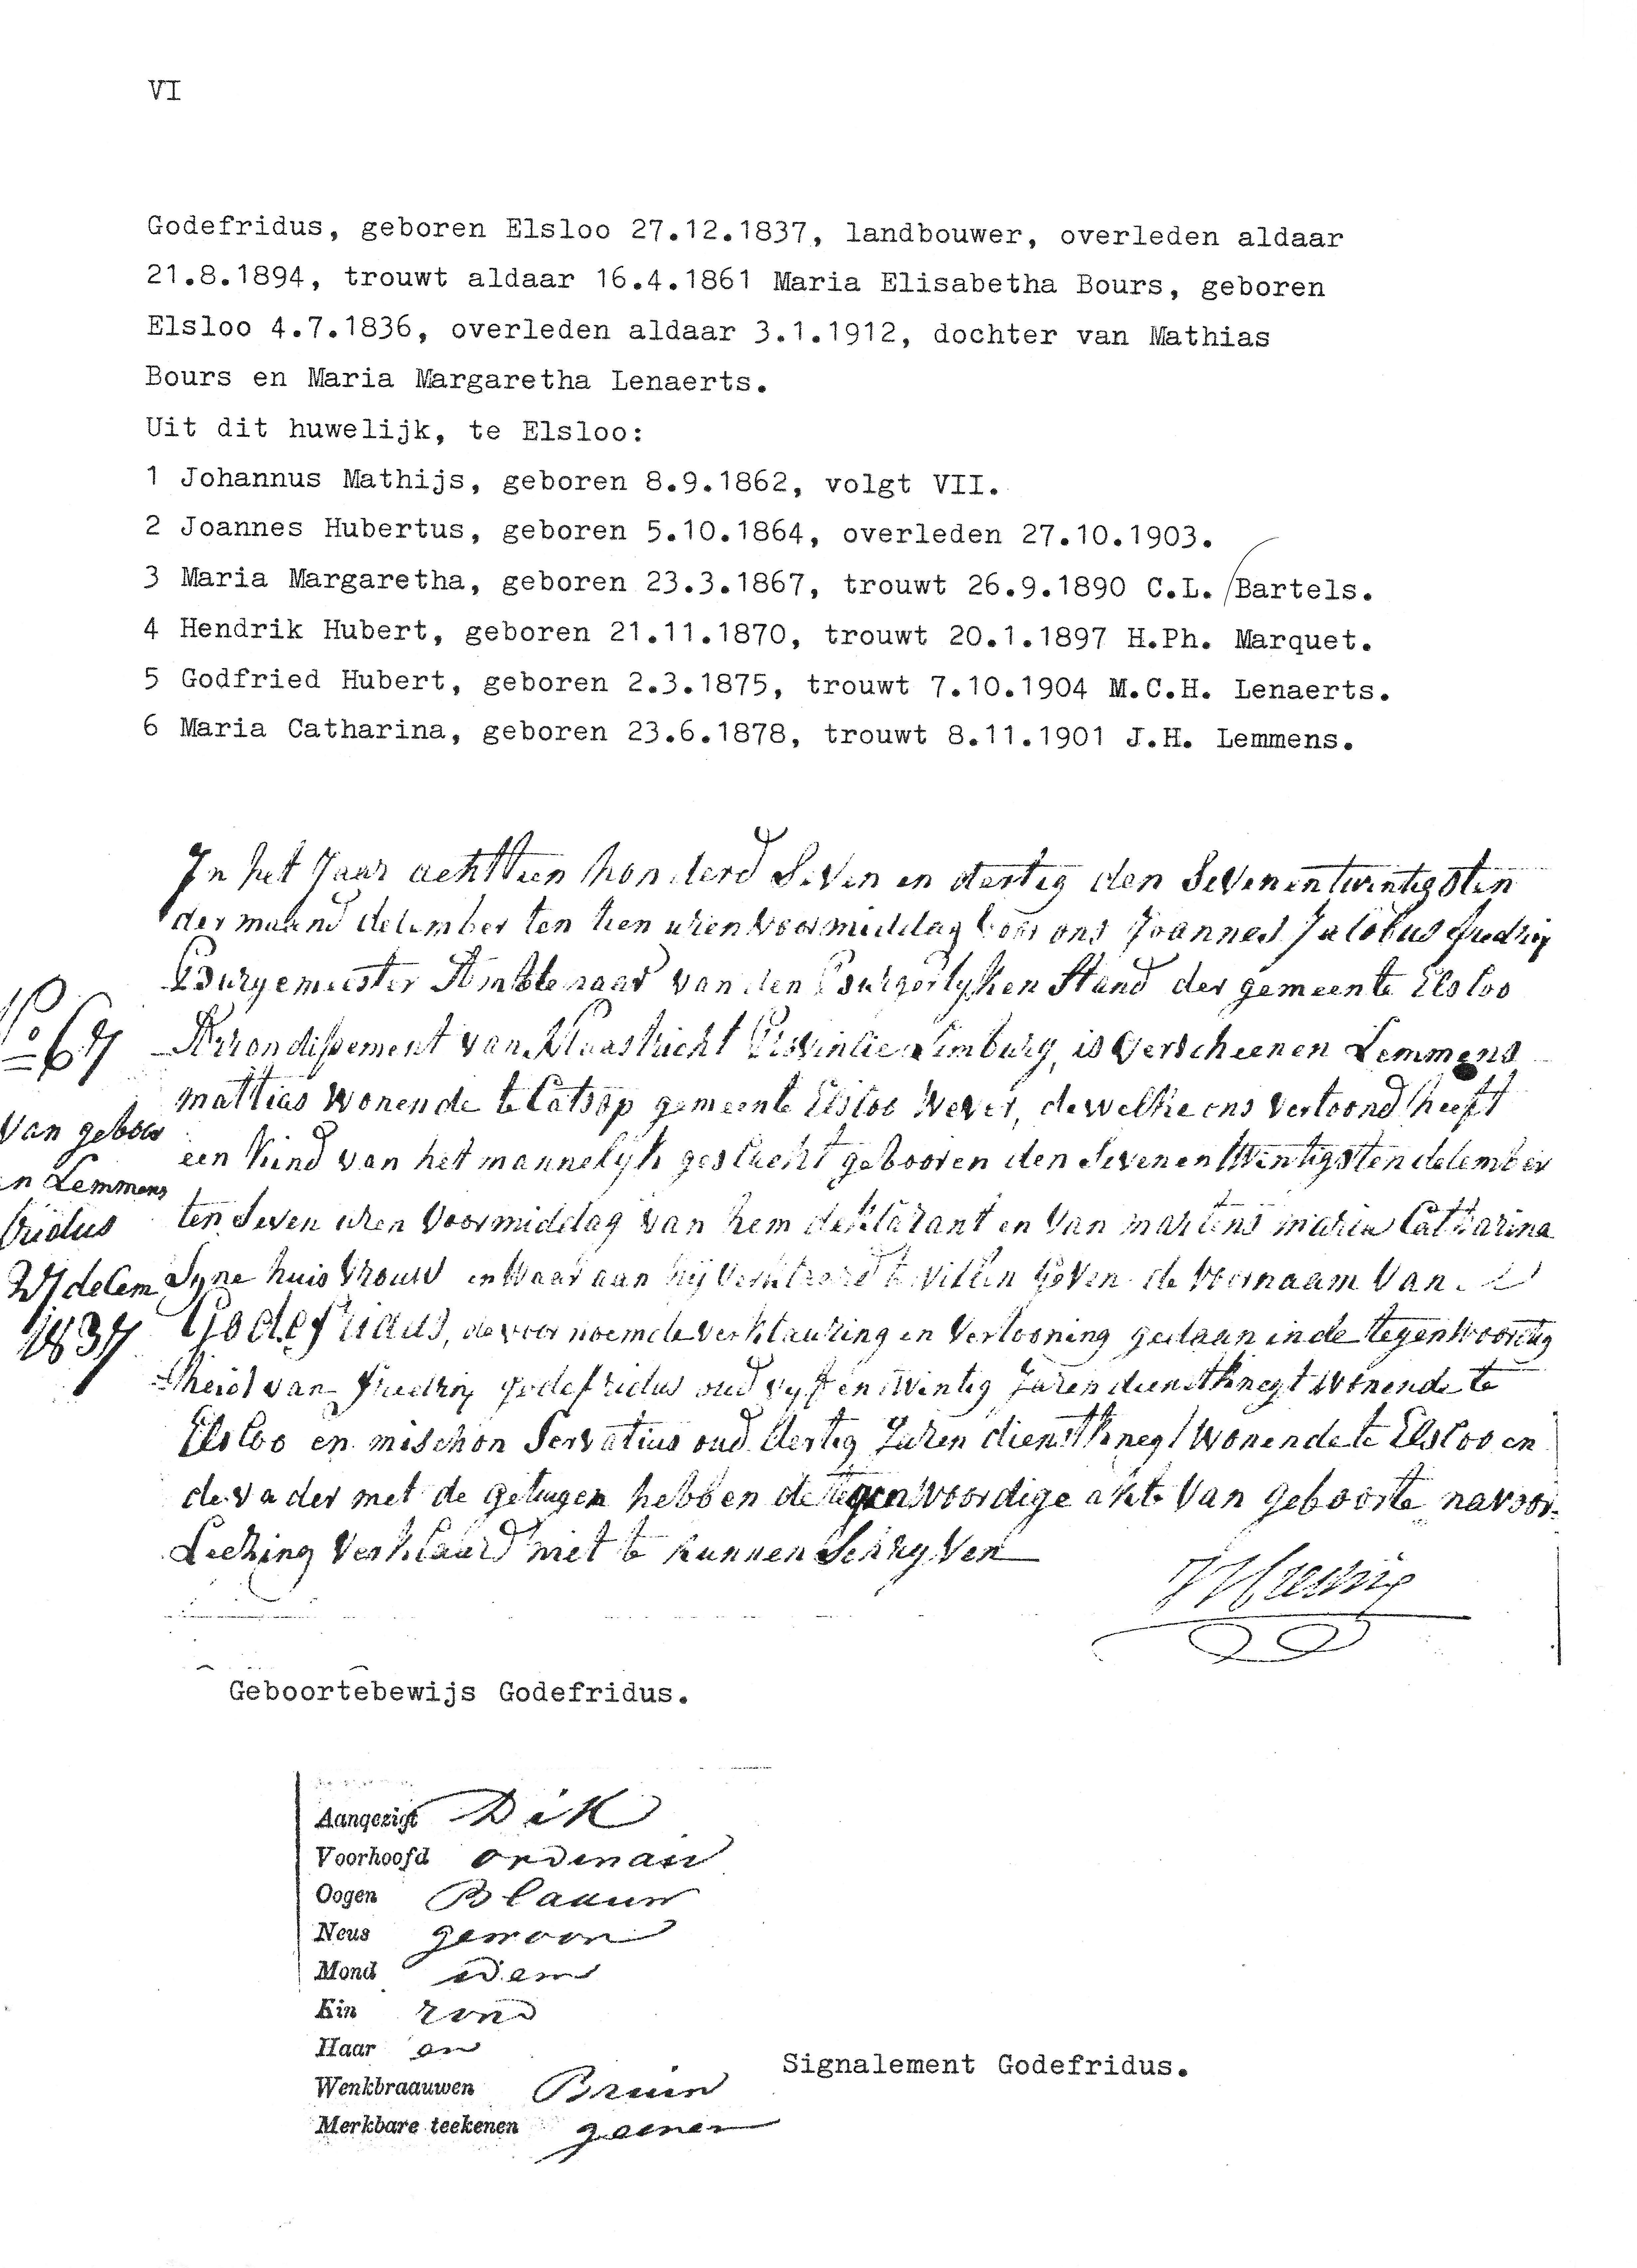 VI
Godefridus, geboren Elsloo 27.12.1837, landbouwer, overleden aldaar
21.8.1894, trouwt aldaar 16.4.1861 Maria Elisabetha Bours, geboren
Elsloo 4.7.1836, overleden aldaar 3.1.1912, dochter van Mathias
Bours en Maria Margaretha Lenaerts.
Uit dit huwelijk, te Elsloo:
1 Johannus Mathijs, geboren 8.9.1862, volgt VII.
2 Joannes Hubertus, geboren 5.10.1864, overleden 27.10.1903.
3 Maria Margaretha, geboren 23.3.1867, trouwt 26.9.1890 C.L. Bartels.
4 Hendrik Hubert, geboren 21.11.1870, trouwt 20.1.1897 H.Ph. Marquet.
5 Godfried Hubert, geboren 2.3.1875, trouwt 7.10.1904 M.C.H. Lenaerts.
6 Maria Catharina, geboren 23.6.1878, trouwt 8.11.1901 J.H. Lemmens.
In het Jaar achttien honderd Seven en dertig den Sevenentwintigsten
der maand december ten tien uren voormiddag voor ons Joannes Jacobus
Burgemeester Ambtenaar van den Burgerlyken Stand der gemeente Elsloo
Arrondissement van Maastricht Provintie Limburg, is Verscheenen Lemmens
Mattias Wonende te Catsop gemeente Elsloo Wever, dewelke ons vertoond heeft
een kind van het mannelyk geslacht gebooren den Sevenentwintigsten december
ten Seven uren Voormiddag van hem deklarant en van martens maria Catharina
Syne huisvrouw en Waar aan hij verklaard te willen geven de voornaam Van
Godefridus, de voornoemde verklaaring en Vertooning gedaan in de tegenwoordig
heid van godefridus oud vyf en twintig Jaren dienstknegt wonende te
Elsloo en mischon Servatius oud dertig Jaren dienstknegt wonende te Elsloo en
de vader met de getuigen hebben de tegenwoordige akte van geboorte na voor-
Leezing Verklaard niet te kunnen Schryven
No 67
Van geboor
en Lemmens
fridus
27 decem
1837
Geboortebewijs Godefridus.
Aangezigt Dik
Voorhoofd ordinair
Oogen Blaauw
Neus gewoon
Mond idem
Kin rond
Haar en
Wenkbraauwen Bruin
Merkbare teekenen geener
Signalement Godefridus.